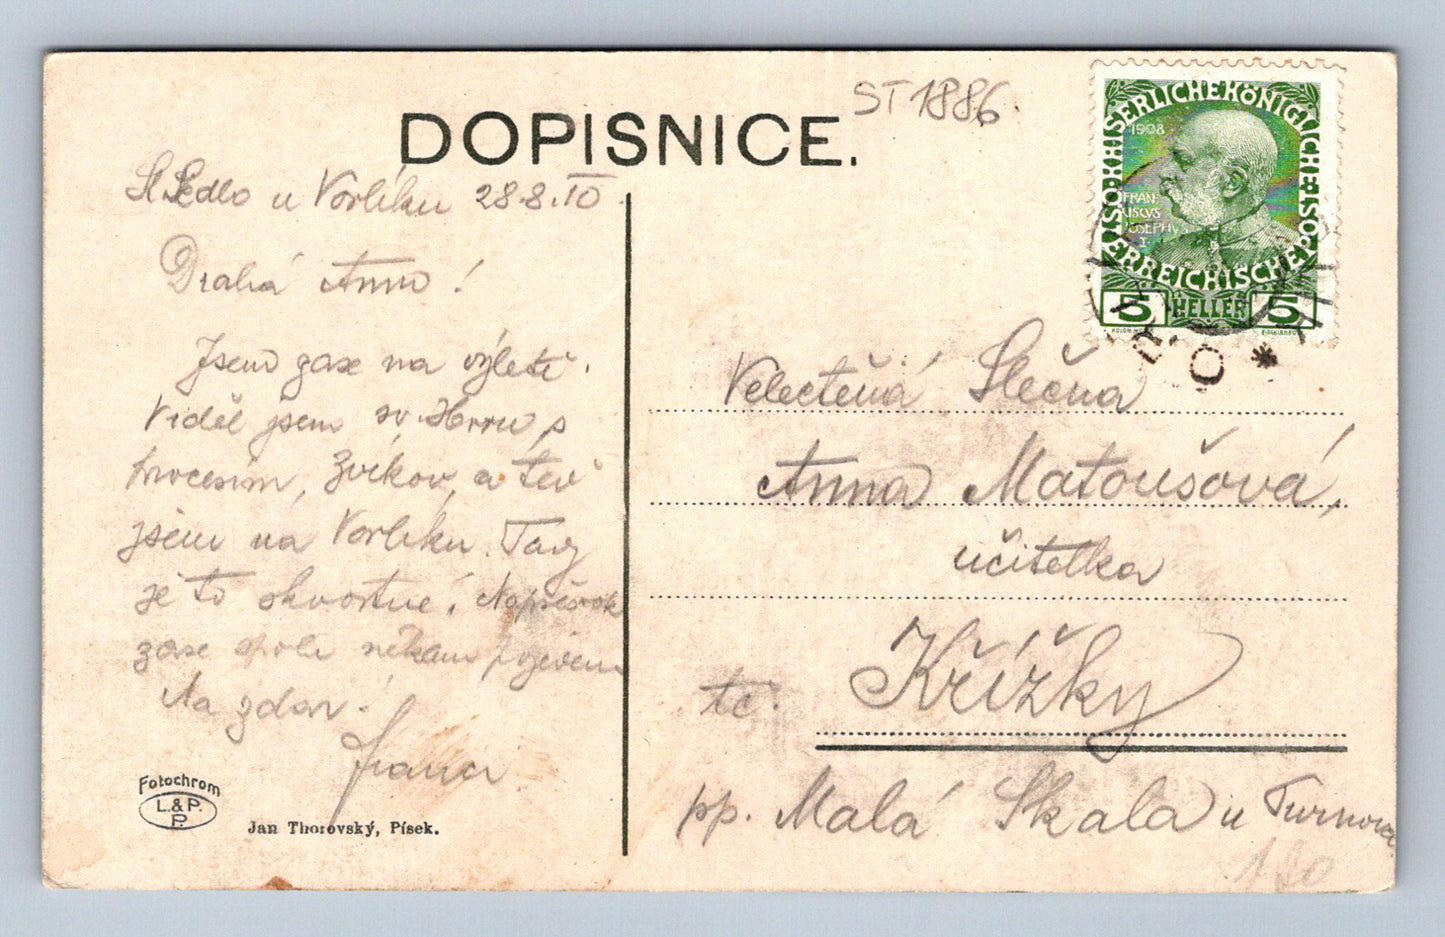 DOPISNICE.
ST 1886
St. Sedlo u Vorlíku 28.8.10
Drahá Anno!
Jsem zase na výletě.
Viděl jsem sv. Horu s
procesím, Zvíkov, a teď
jsem na Vorlíku. Tady
je to skvostné!
zase spolu někam
Na zdar!
Fotochrom
L.&P.
P.
Jan Thorovský, Písek.
KAISERLICHE KÖNIGLICHE ÖSTERREICHISCHE POST
1908
FRANCISCUS
JOSEPHUS
I.
5 HELLER 5
Velectěná Slečna
Anna Matoušová,
učitelka
tč. Křížky
pp. Malá Skála u Turnova
180